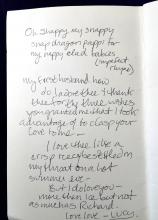 Oh Snappy my snappy
snap dragon pappy to
my nappy clad babies
(imperfect
rhyme)
my first husband how
do I adore thee & thank
thee for thy three wishes
you granted me that I took
advantage of to clasp your
love to me –
I love thee like a
crisp
my throat on a hot
summer eve –
But I do love you –
more than ice but not
as much as Richard –
love love – Lucy.